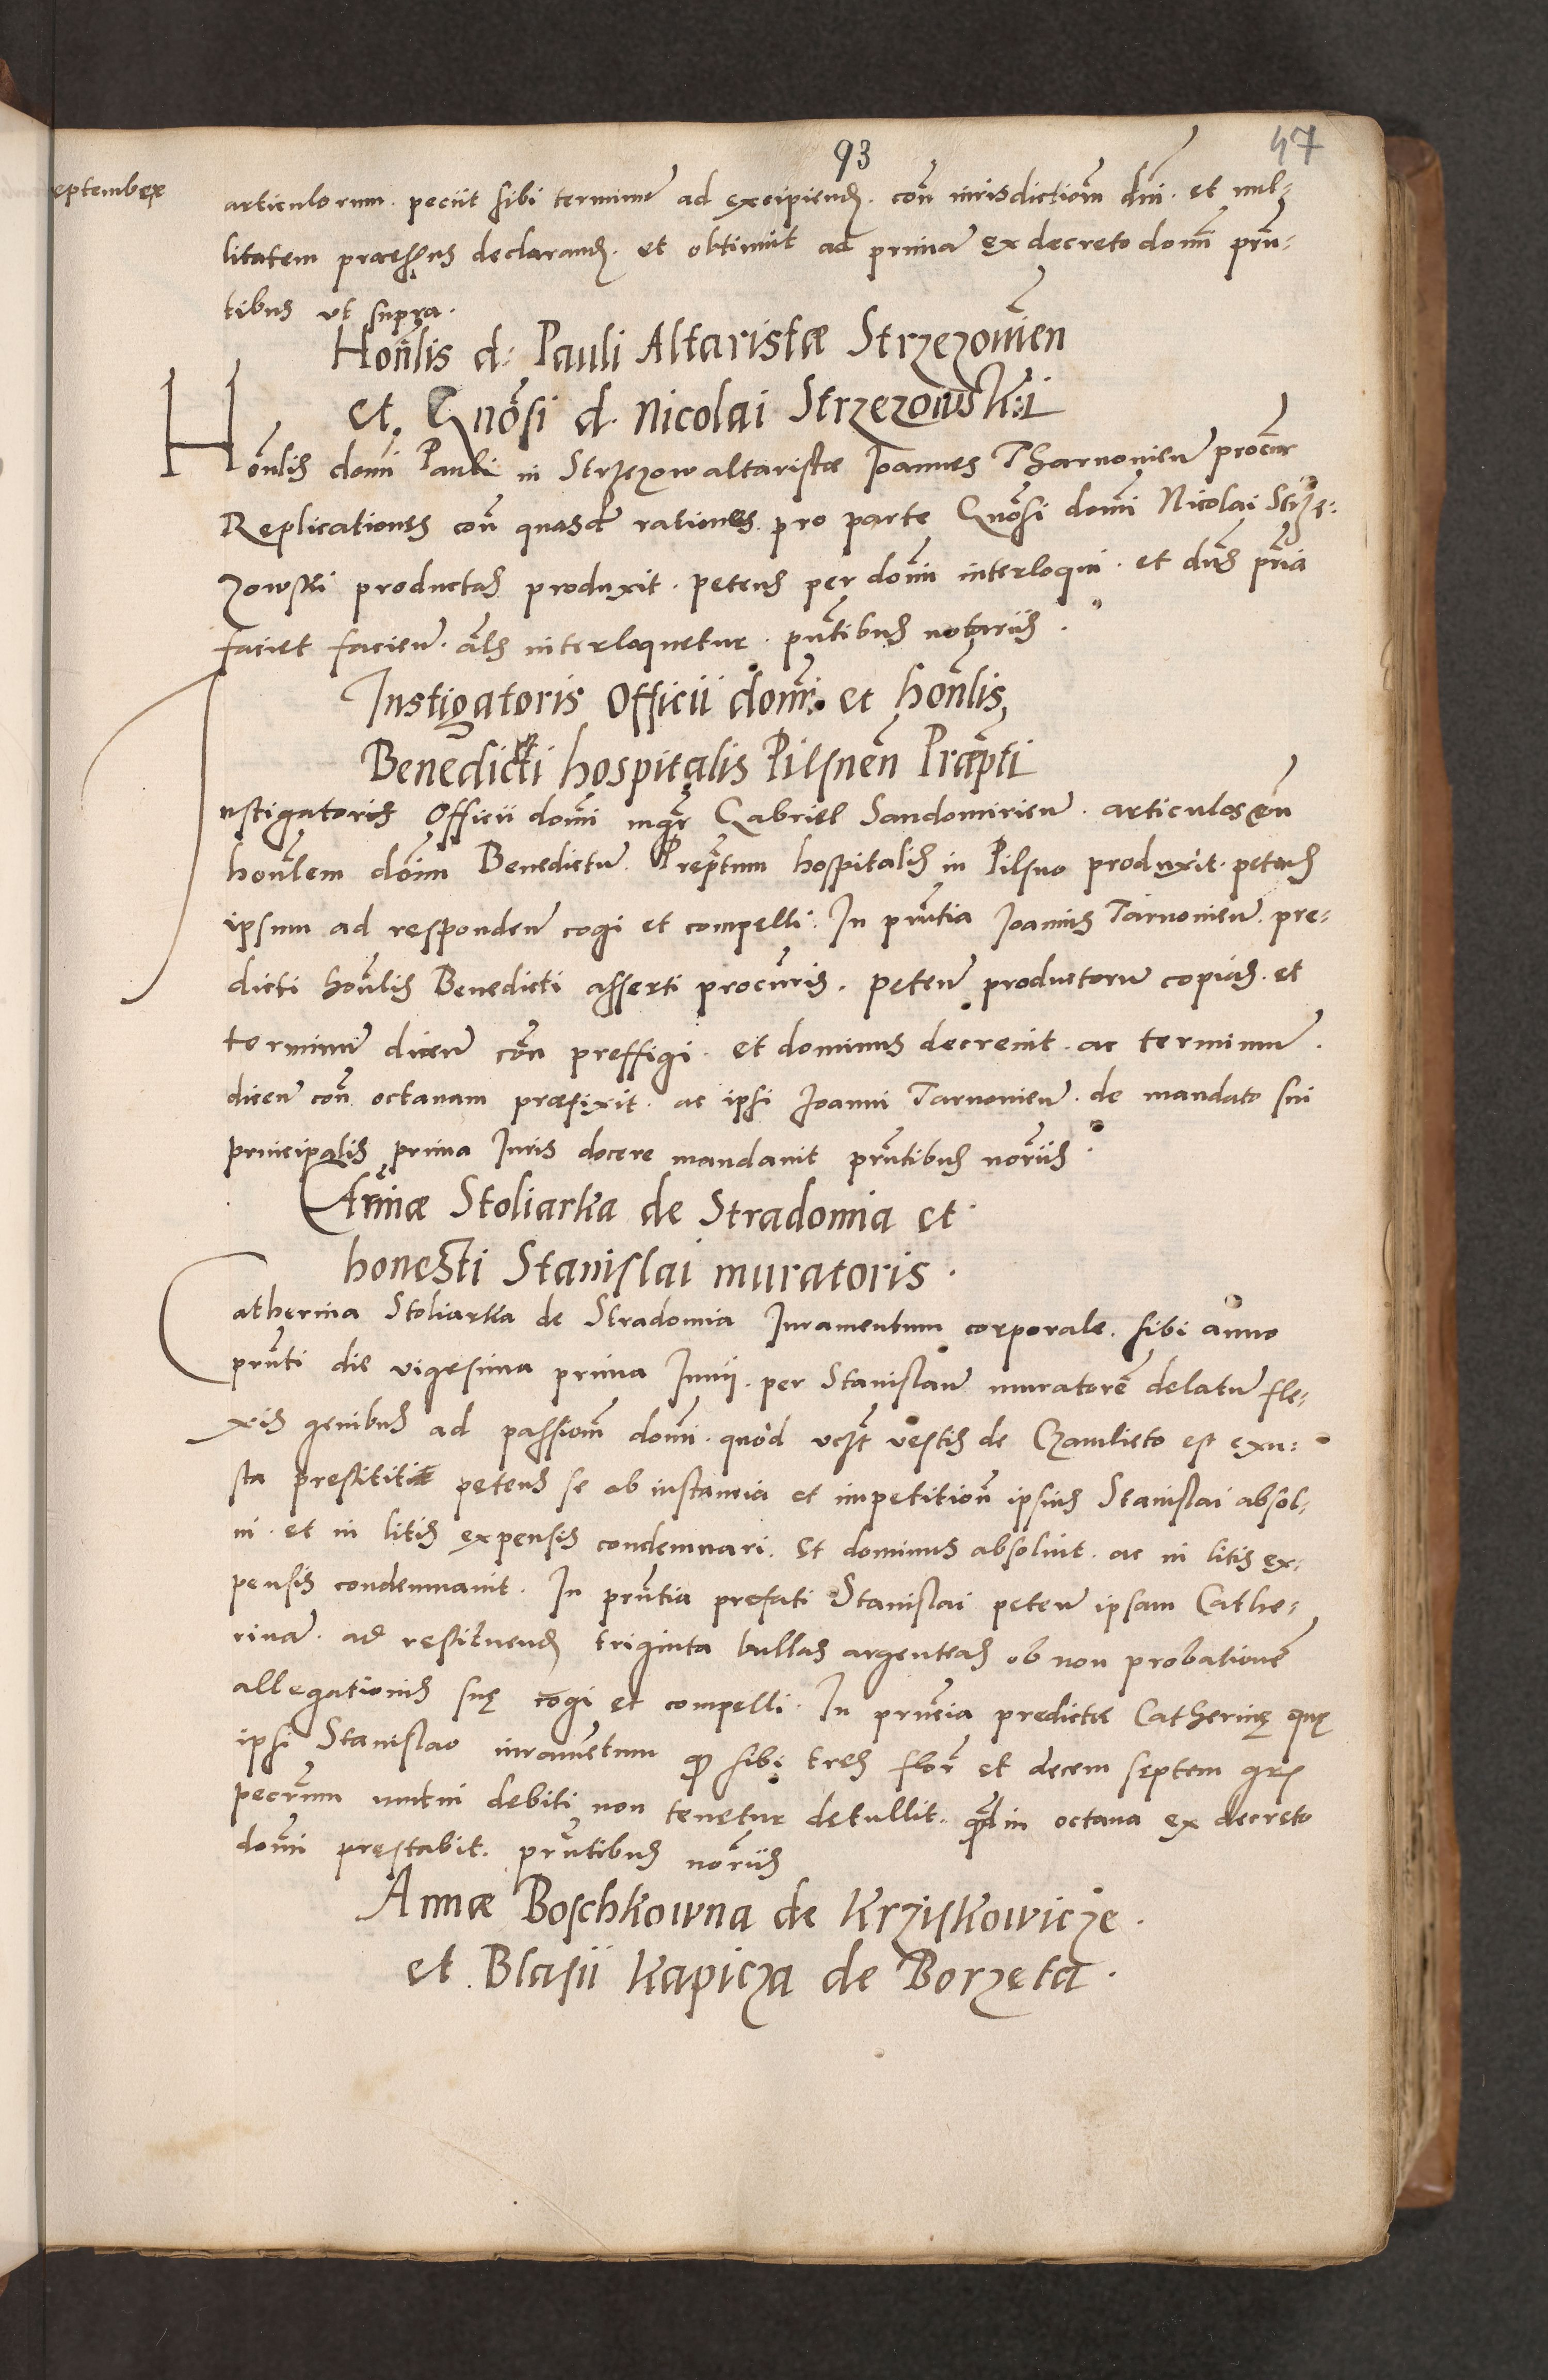 93
47
eptember
articulorum. peciit sibi terminum ad excipiend. con iurisdictiom dni. et nul-
litatem processus declarand. et obtinuit ad primam ex decreto domi pnn-
tibus vt supra.
Honlis d. Pauli Altaristæ Strzezowien
et Gnosi d. Nicolai Strzezowski
Honlis domi Pauli in Strzezow altaristæ Joannes Tharnovien procur
Replicationes con quasdam rationes pro parte Gnosi domi Nicolai Strze-
zowski productas produxit. petens per domi interloqui. et dns pria
faciet facien. als interloquetur. pntibus notariis.
Instigatoris Officii domi et honlis
Benedicti hospitalis Pilsnen Præpti
Instigatoris Officii domi mgr Gabriel Sandomirien. articulos con
honlem doim Benedictum Preptum hospitalis in Pilsno produxit. petens
ipsum ad responden cogi et compelli. In pntia Joannis Tarnovien. pre-
dicti honlis Benedicti asserti procuris. peten productorum copias. et
terminum dicen con preffigi. et dominus decrevit. ac terminum
dicen con octavam præfixit. ac ipsi Joanni Tarnovien. de mandato sui
principalis prima Iuris docere mandavit pntibus noriis
Catherinæ Stoliarka de Stradomia et
honesti Stanislai muratoris.
Catherina Stoliarka de Stradomia Iuramentum corporale. sibi anno
pnti die vigesima prima Iunii. per Stanislaum muratorem delatum fle-
xis genibus ad passiom domi. quod vestis de Czamleto est exu-
sta prestitit petens se ab instancia et impetition ipsius Stanislai absol-
vi. et in litis expensis condemnari. Et dominus absolvit. ac in litis ex-
pensis condemnavit. In pntia prefati Stanislai peten ipsam Cathe-
rinam. ad restituend triginta bullas argenteas ob non probationem
allegationis suę cogi et compelli. In pntia predictæ Catherinę quę
ipsi Stanislao iuramentum qd sibi tres flor et decem septem gros
pecrum mutui debiti non tenetur detullit. qd in octava ex decreto
domi prestabit. pntibus noriis
Annæ Boschkowna de Krziskowicze.
et Blasii Kapicza de Borzęta.